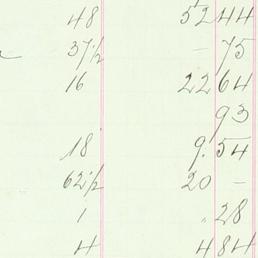 48 52 44
37½ – 75
16 22 64
93
18 9. 54
62½ 20 –
1 " 28
4 4 84